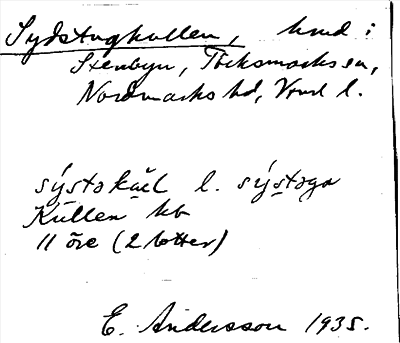 Sydstugkullen, hmd i
Stenbyn, Töcksmarks sn,
Nordmarks hd, Vrml l.
sýstəkul l. sýstəga
Kullen kb
11 öre (2 lotter)
E. Andersson 1935.